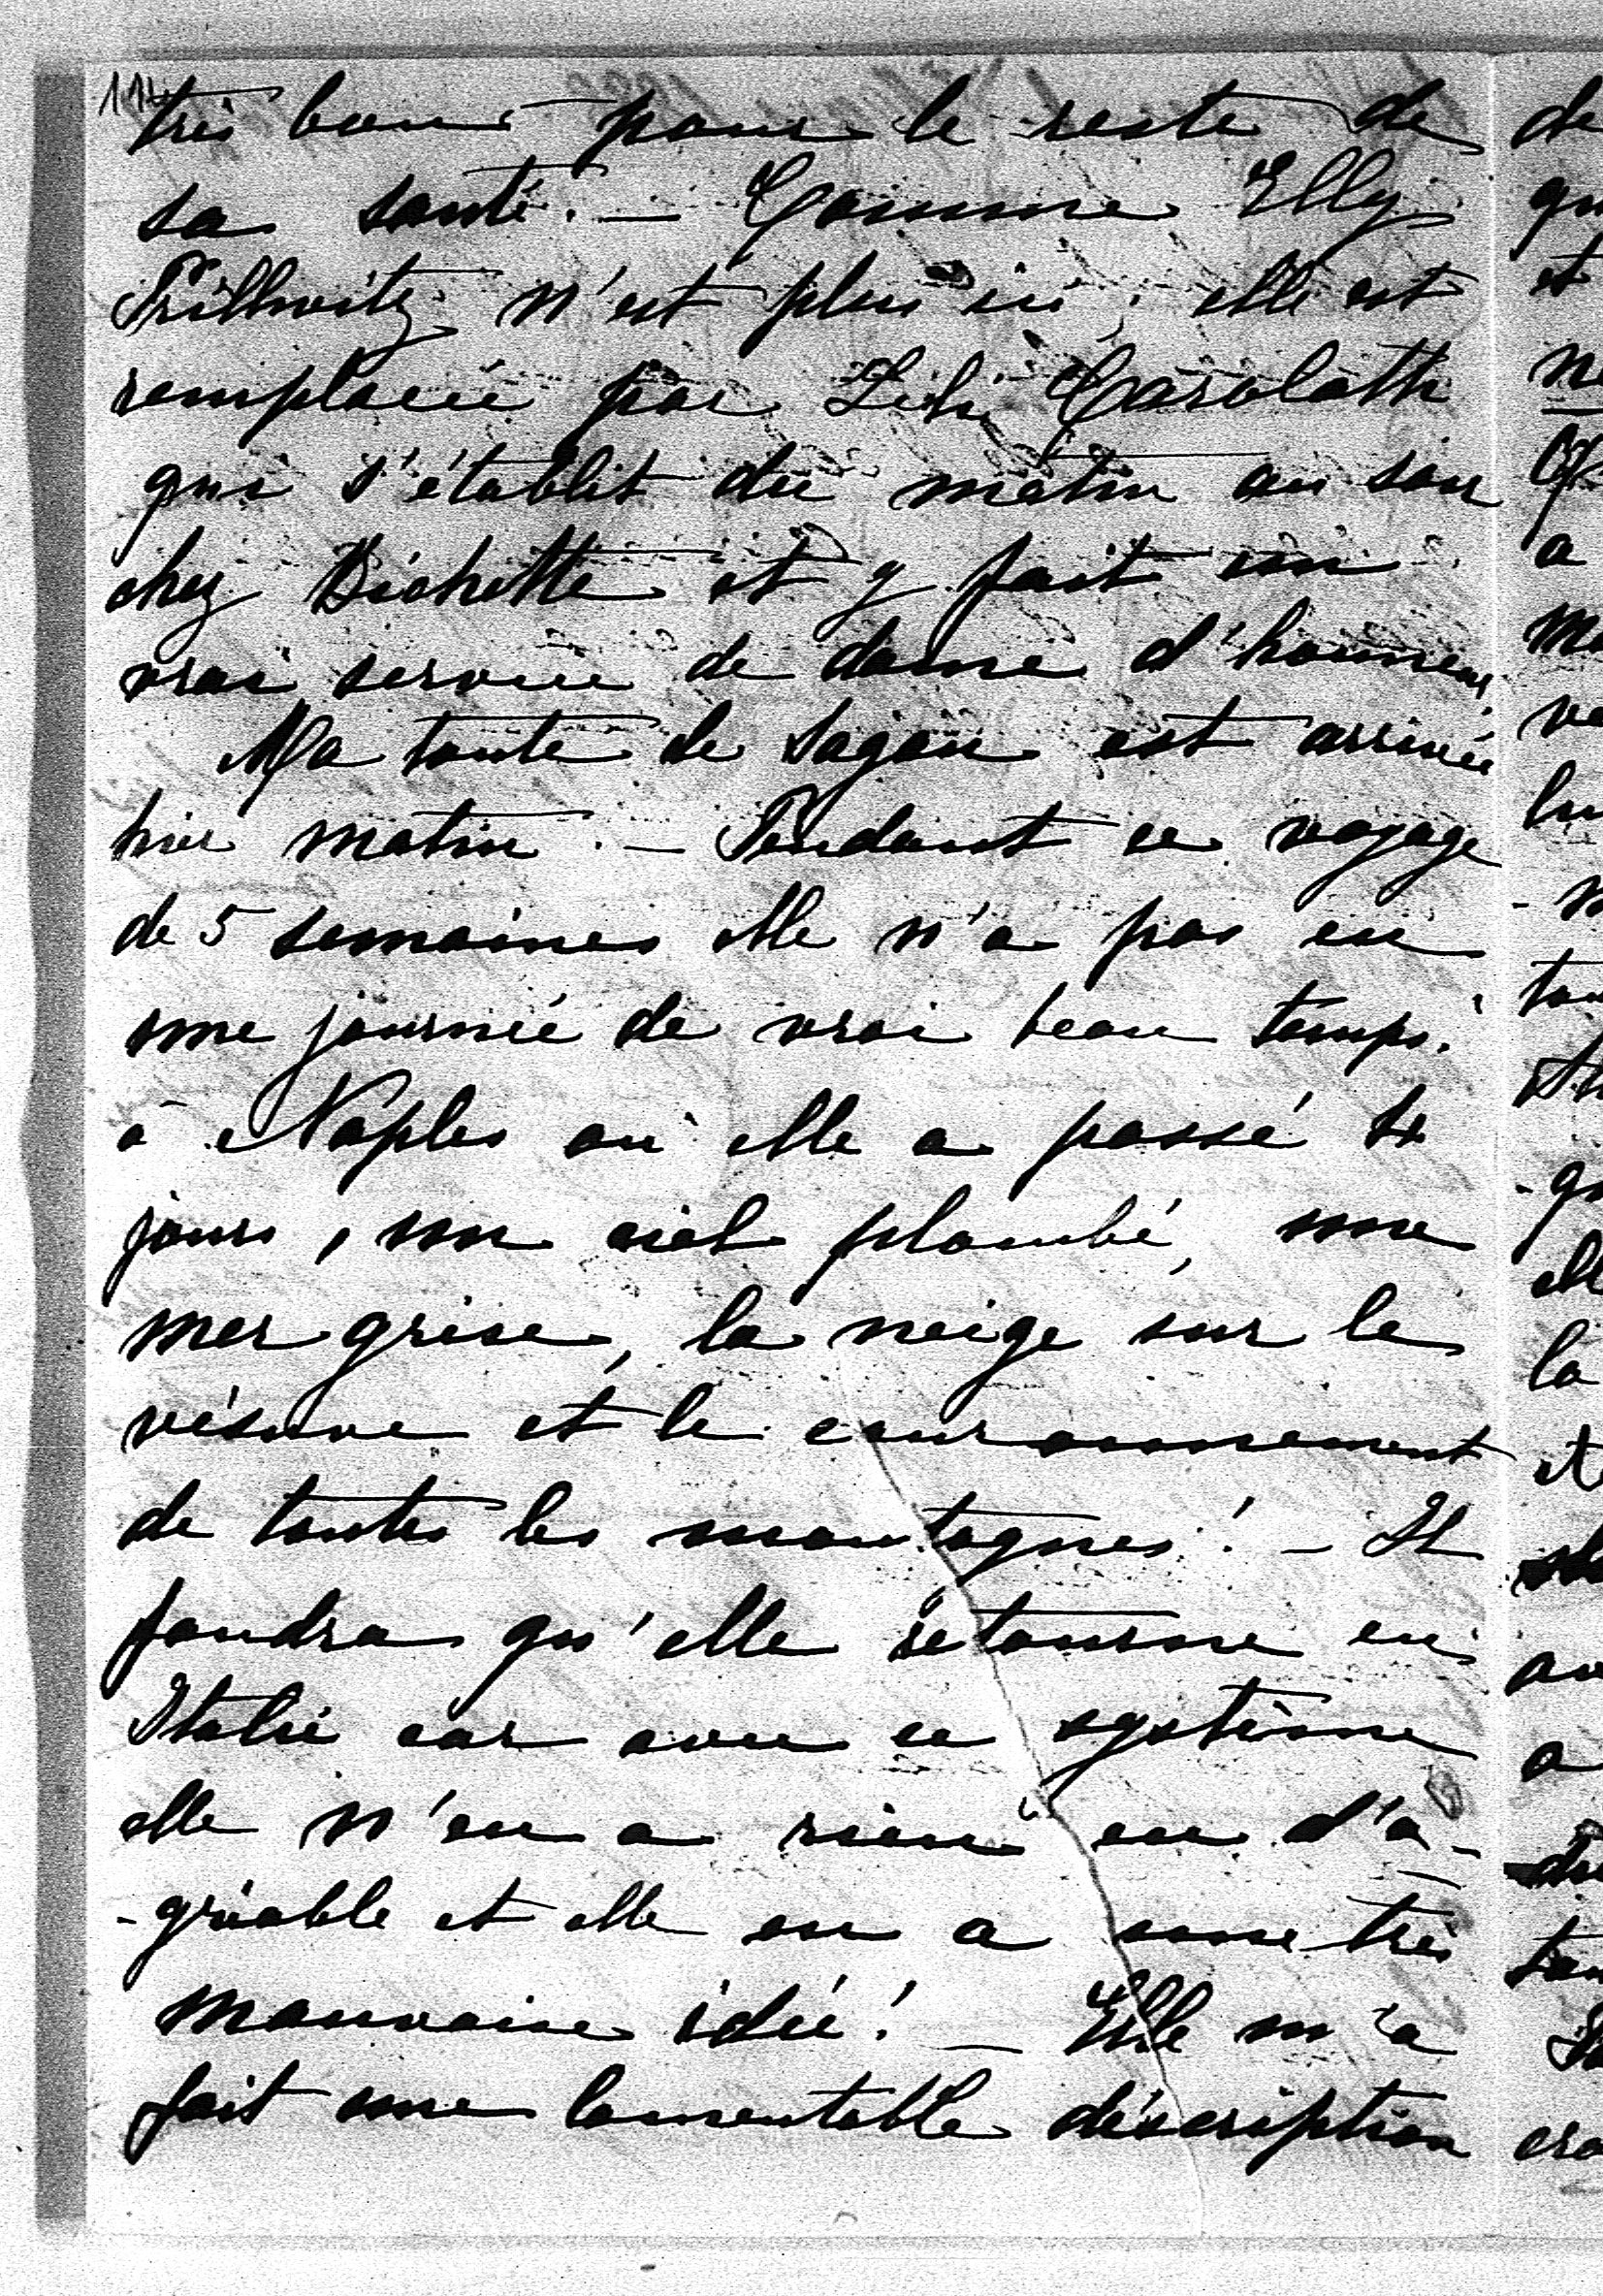 114
très bonne pour le reste de
sa santé. — Comme Elly
Prillwitz n'est plus ici, elle est
remplacée par Lili Carolath
qui s'établit du matin au soir
chez Bichette et y fait un
vrai service de dame d'honneur.
Ma tante de Sagan est arrivée
hier matin. — Pendant ce voyage
de 5 semaines elle n'a pas eu
une journée de vrai beau temps.
à Naples où elle a passé
jours, un ciel plombé, une
mer grise, la neige sur le
vésuve et le couronnement
de toutes les montagnes! — Il
faudra qu'elle retourne en
Italie car avec ce système
elle n'en a rien eu d'a-
-gréable et elle en a une très
mauvaise idée! — Elle m'a
fait une lamentable déscription